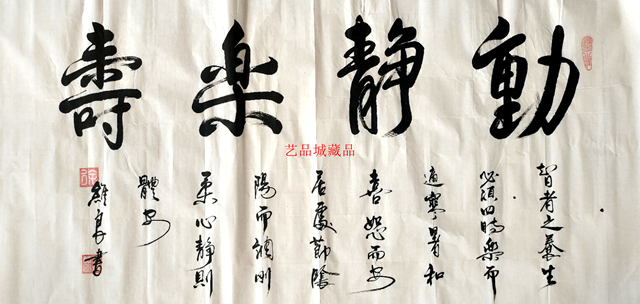 動静楽壽
智者之養生
必須四時楽而
適寒暑和
喜怒而安
居處節陰
陽而調剛
柔心静則
體安
維良書
艺品城藏品